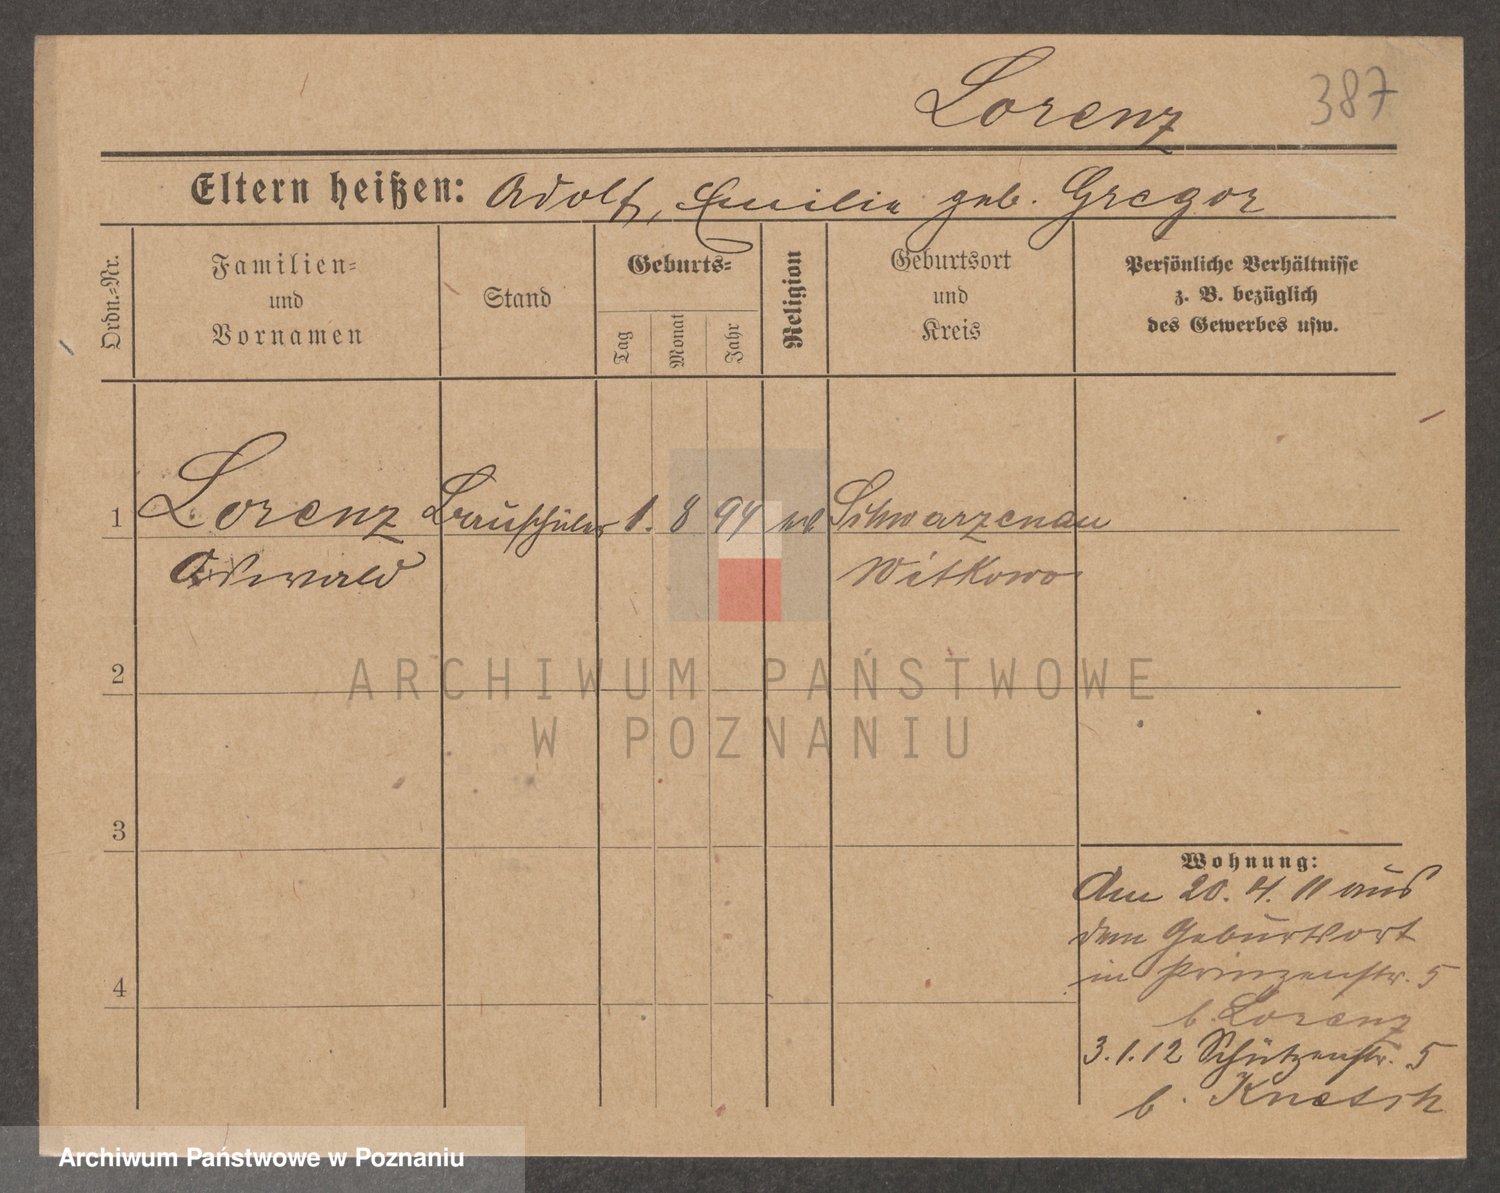 Lorenz
387
Eltern heißen: Adolf, Emilie geb. Gregor
Ordn.=Nr.
Familien=
und
Vornamen
Stand
Geburts=
Tag
Monat
Jahr
Religion
Geburtsort
und
Kreis
Persönliche Verhältnisse
z. B. bezüglich
des Gewerbes usw.
1
Lorenz
Oswald
Bauschüler
1. 8 94
Schwarzenau
Witkowo
2
3
4
Wohnung:
Am 20. 4. 11 aus
dem Geburtsort
in Prinzenstr. 5
b. Lorenz
3.1.12 Schützenstr. 5
b.
ARCHIWUM PAŃSTWOWE
W POZNANIU
Archiwum Państwowe w Poznaniu